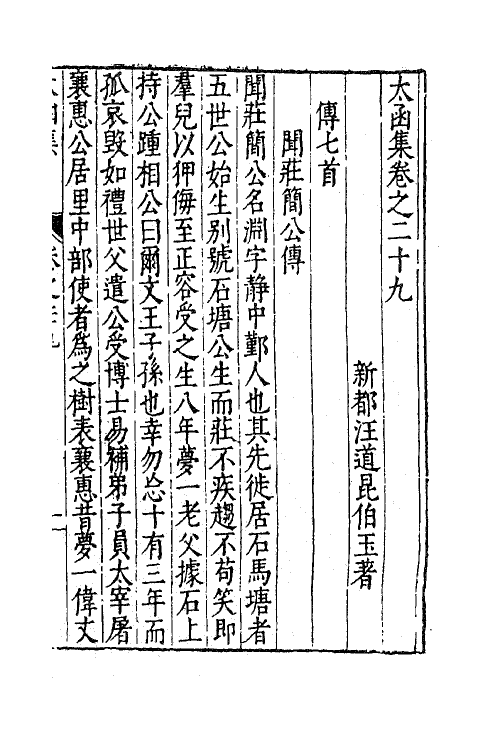 太函集卷之二十九
新都汪道昆伯玉著
傳七首
聞莊簡公傳
聞莊簡公名淵字靜中鄞人也其先徙居石馬塘者
五世公始生别號石塘公生而莊不疾趨不苟笑即
羣兒以狎侮至正容受之生八年夢一老父據石上
持公踵相公曰爾文王子孫也幸勿忩十有三年而
孤哀毀如禮世父遣公受博士易補弟子員太宰屠
襄惠公居里中部使者爲之樹表襄惠昔夢一偉丈